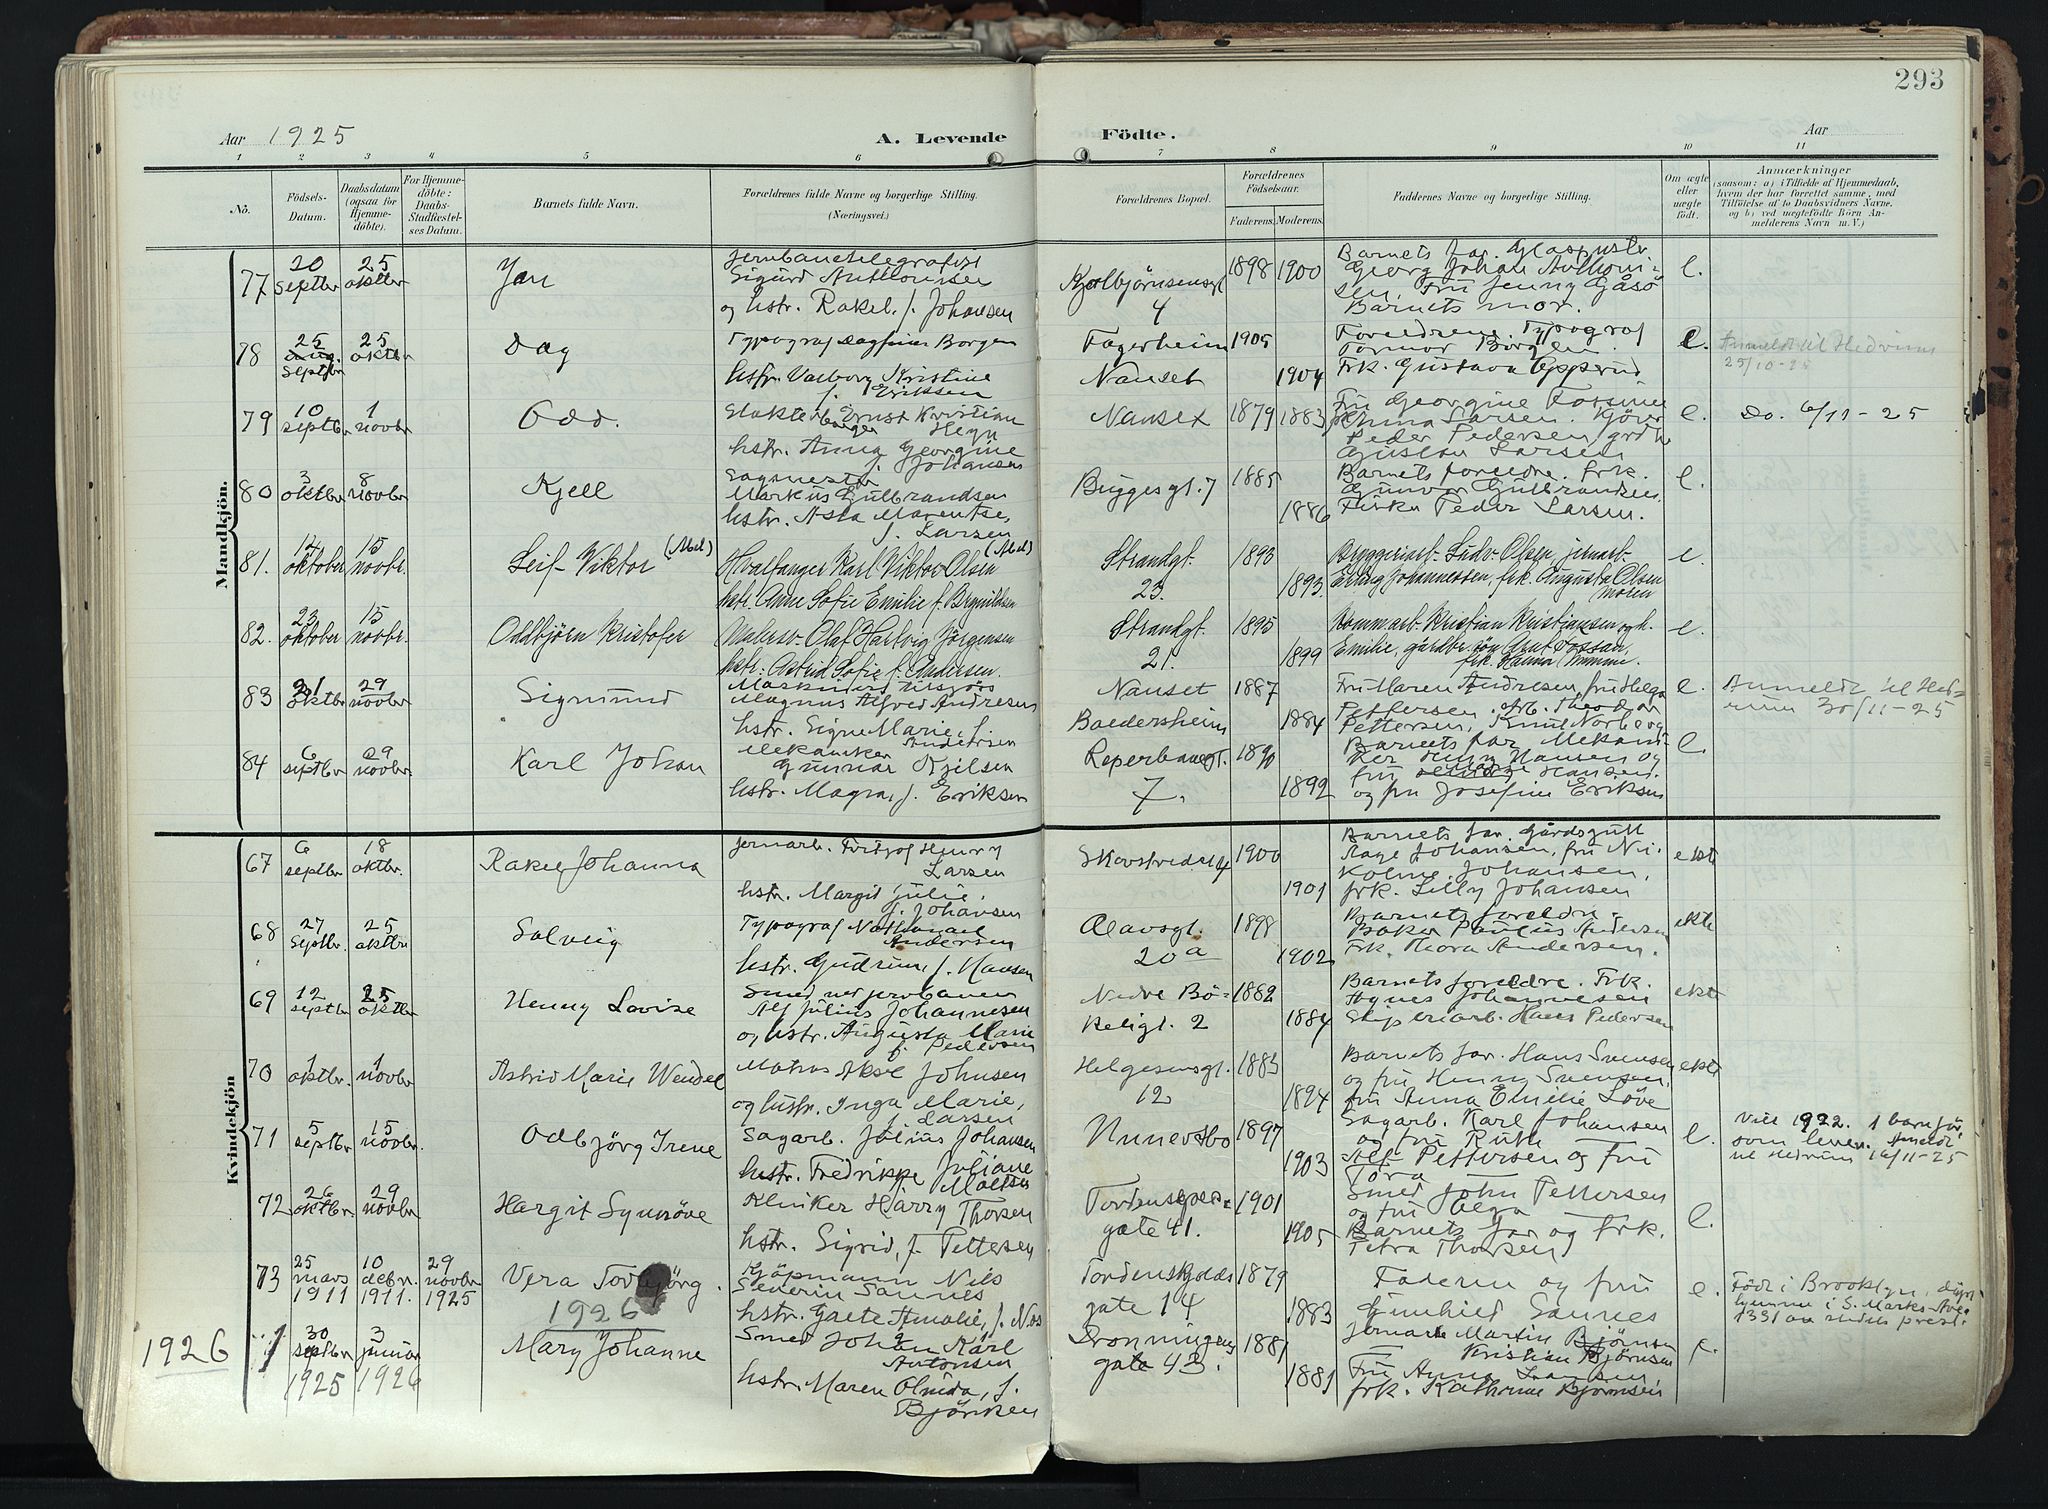 293
Aar 1925
A. Levende Födte.
Aar
1 2 3 4 5 6 7 8 9 10 11
No.
Födsels-Datum.
Daabsdatum (ogsaa for Hjemme-döbte).
For Hjemme-döbte: Daabs-Stadfæstel-ses Datum.
Barnets fulde Navn.
Forældrenes fulde Navne og borgerlige Stilling. (Næringsvei.)
Forældrenes Bopæl.
Forældrenes Födselsaar.
Faderens. Moderens.
Faddernes Navne og borgerlige Stilling.
Om ægte eller uægte födt.
Anmærkninger
(saasom: a) i Tilfælde af Hjemmedaab, hvem der har forrettet samme, med Tilföielse af to Daabsvidners Navne, og b) ved uægtefödte Börn An-melderens Navn m. V.)
Mandkjön.
77 20 septbr 25 oktbr Jan
Jernbanetelegrafist
Sigurd Anthonisen
og hstr. Rakel, f. Johansen
Kolbjörnsensgt 4 1898 1900
Barnets far.
Georg Johan Anthoni-
sen, Fru Jenny Gåsö
Barnets mor.
e.
78 25 septbr 25 oktbr Dag
Typograf Dagfinn Borgen
hstr. Valborg Kristine
f. Eriksen
Fagerheim Nanset 1905 1904
Foreldrene. Typograf
Tormor Borgen.
Frk. Gustava
e. Anmeldt til Hedrum
25/10-25
79 10 septbr 1 novbr Odd.
Ernst Kristian
Heyn
hstr. Anna Georgine
f. Johansen
Nanset 1879 1883
Fru Georgine
Anna Larsen.
Peder Pedersen,
Gustav Larsen
e. Do. 6/11-25
80 3 oktbr 8 novbr Kjell
Sagmester
Markus Gulbrandsen
hstr. Asta Marentse,
f. Larsen
Buggesgt. 7 1885 1886
Barnets foreldre. frk.
Gunvor Gulbrandsen.
Peder Larsen.
e.
81. 14 oktober 15 novbr. Leif Viktor (Abel)
(Abel)
Hvalfanger Karl Viktor Olsen
hstr. Anne Sofie Emilie f. Brynildsen
Strandgt. 23. 1893 1893.
Bryggeriarb. Ludv. Olsen, jernarb.
Erling Johannessen, frk. Augusta Olsen
moren
e.
82. 23 oktober 15 novbr. Oddbjörn Kristofer
Malersv. Olaf Hartvig Jörgensen
hstr. Astrid Sofie f. Andersen.
Strandgt. 21. 1895 1899
Kommarb. Kristian Kristiansen og h.
Emilie, gårdbr. sön
frk. Hanna
e.
83 21 oktbr 29 novbr Sigmund
Maskinist tilsjös
Magnus Alfred Andresen
hstr. Signe Marie, f.
Andersen
Nanset Baedersheim 1887 1884
Fru Maren Andresen, fru Helga
Pettersen, Theodor
Pettersen, Knut Norberg
e. Anmeldt til Hed-
rum 30/11-25
84 6 septbr 29 novbr Karl Johan
Mekaniker
Gunnar Kjelsen
hstr. Magna, f. Eriksen
Reperbanegt. 7. 1890 1892
Barnets far, Mekani-
ker Henry Hansen og
fru Hansen.
og fru Josefine Eriksen
e.
Kvindekjön
67 6 septbr 18 oktbr. Rakel Johanna
Jernarb. Fritjof Henry
Larsen
hstr. Margit Julie,
f. Johansen
1900 1901
Barnets far. Gårdsgutt
Aage Johansen, fru Ni-
koline Johansen,
frk. Lilly Johansen
ekte
68 27 septbr. 25 oktbr Solveig
Typograf Nathanael
Andersen
hstr. Gudrun, f. Hansen
Olavsgt. 20a 1898 1902
Barnets foreldre.
Baker Paulus Andersen
Frk. Thora Andersen.
ekte
69 12 septbr 25 oktbr Henny Lovise
Smed ved jernbanen
Alf Julius Johannesen
og hstr. Augusta Marie
f. Pedersen
Nedre Bö-keligt. 2 1882 1884
Barnets foreldre. Frk.
Agnes Johannesen
Skiperiarb. Hans Pedersen
ekte
70 1 oktbr. 1 novbr. Astrid Marie Wendel
Matros Aksel Johnsen
og hstr. Inga Marie,
f. Larsen
Helgesensgt. 12 1883 1894
Barnets far. Hans Svensen
og fru Henny Svensen,
fru Anna Emilie Löve
ekte
71 5 septbr 15 novbr. Odbjörg Irene
Sagarb. Julius Johansen
hstr. Fredrikke Juliane
1897 1903
Sagarb. Karl Johansen
og fru Ruth
Alf Pettersen og fru
Tora
e.
Viet 1922. 1 barn för
som lever. Anmeldt
til Hedrum 16/11-25
72 26 oktbr. 29 novbr Margit Synnöve
Klinker Harry Thorsen
hstr. Sigrid, f. Pettersen
Tordenskjolds-gate 41. 1901 1905
Smed John Pettersen
og fru Helga
Barnets far og Frk.
Petra Thorsen
e.
73 25 mars 1911 10 debr. 1911. 29 novbr 1925 Vera Torbjörg.
Kjöpmann Nils
Severin Sannes
hstr. Grete Amalie, f. Næs
Tordenskjolds gate 14 1879 1883
Faderen og fru
Gunhild Sannes
e.
Födt i Brooklyn, döpt
hjemme i S. Marks Ave
1391 av stedets prest.
1926
1926 1 30 septbr 1925 3 januar 1926 Mary Johanne
Smed Johan Karl
Antonsen
hstr. Maren Oluida, f.
Björnsen
Dronningens gate 43. 1881 1881
Jernarb. Martin Björnsen
Kristian Björnsen
Fru Anna Larsen
frk. Kathrine Bjørnsen
e.